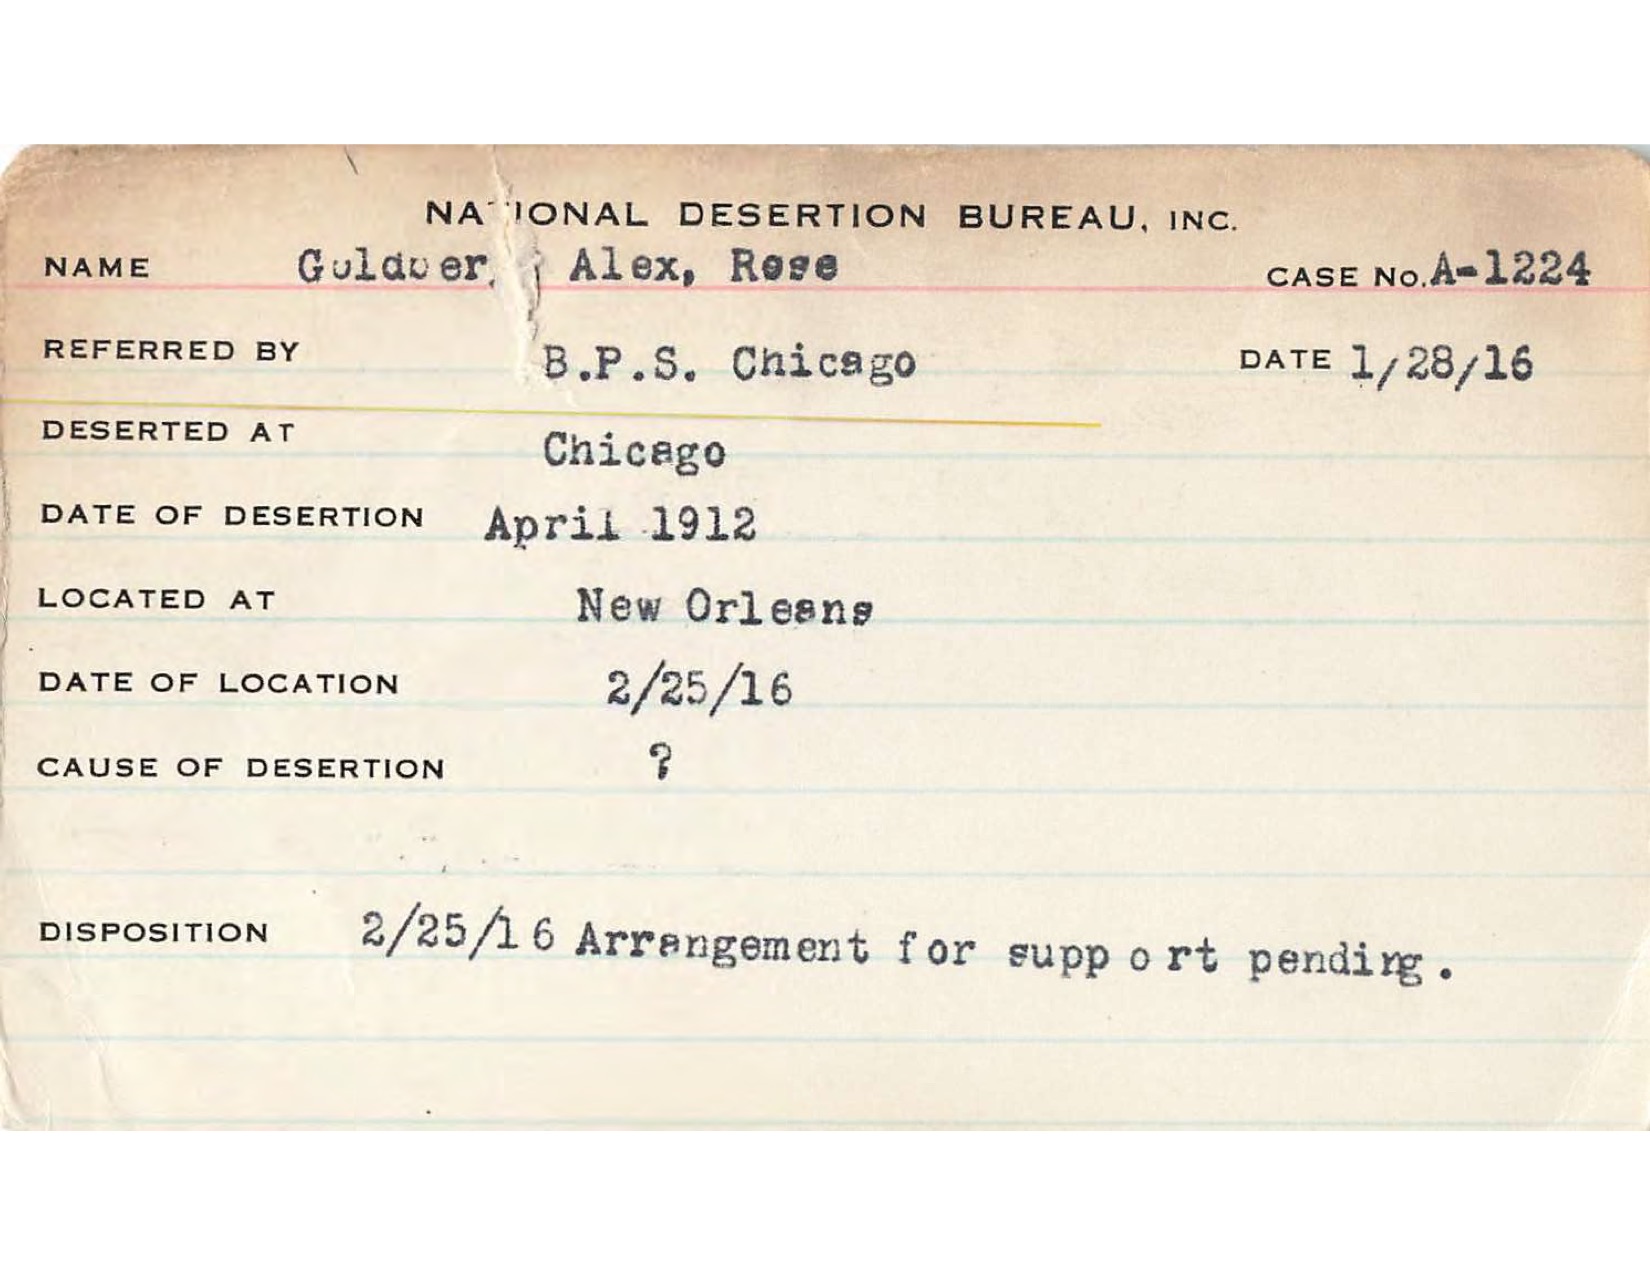 NATIONAL DESERTION BUREAU, INC.
NAME Goldberg, Alex, Rose CASE No. A-1224
REFERRED BY B.P.S. Chicago DATE 1/28/16
DESERTED AT Chicago
DATE OF DESERTION April 1912
LOCATED AT New Orleans
DATE OF LOCATION 2/25/16
CAUSE OF DESERTION ?
DISPOSITION 2/25/16 Arrangement for support pending.